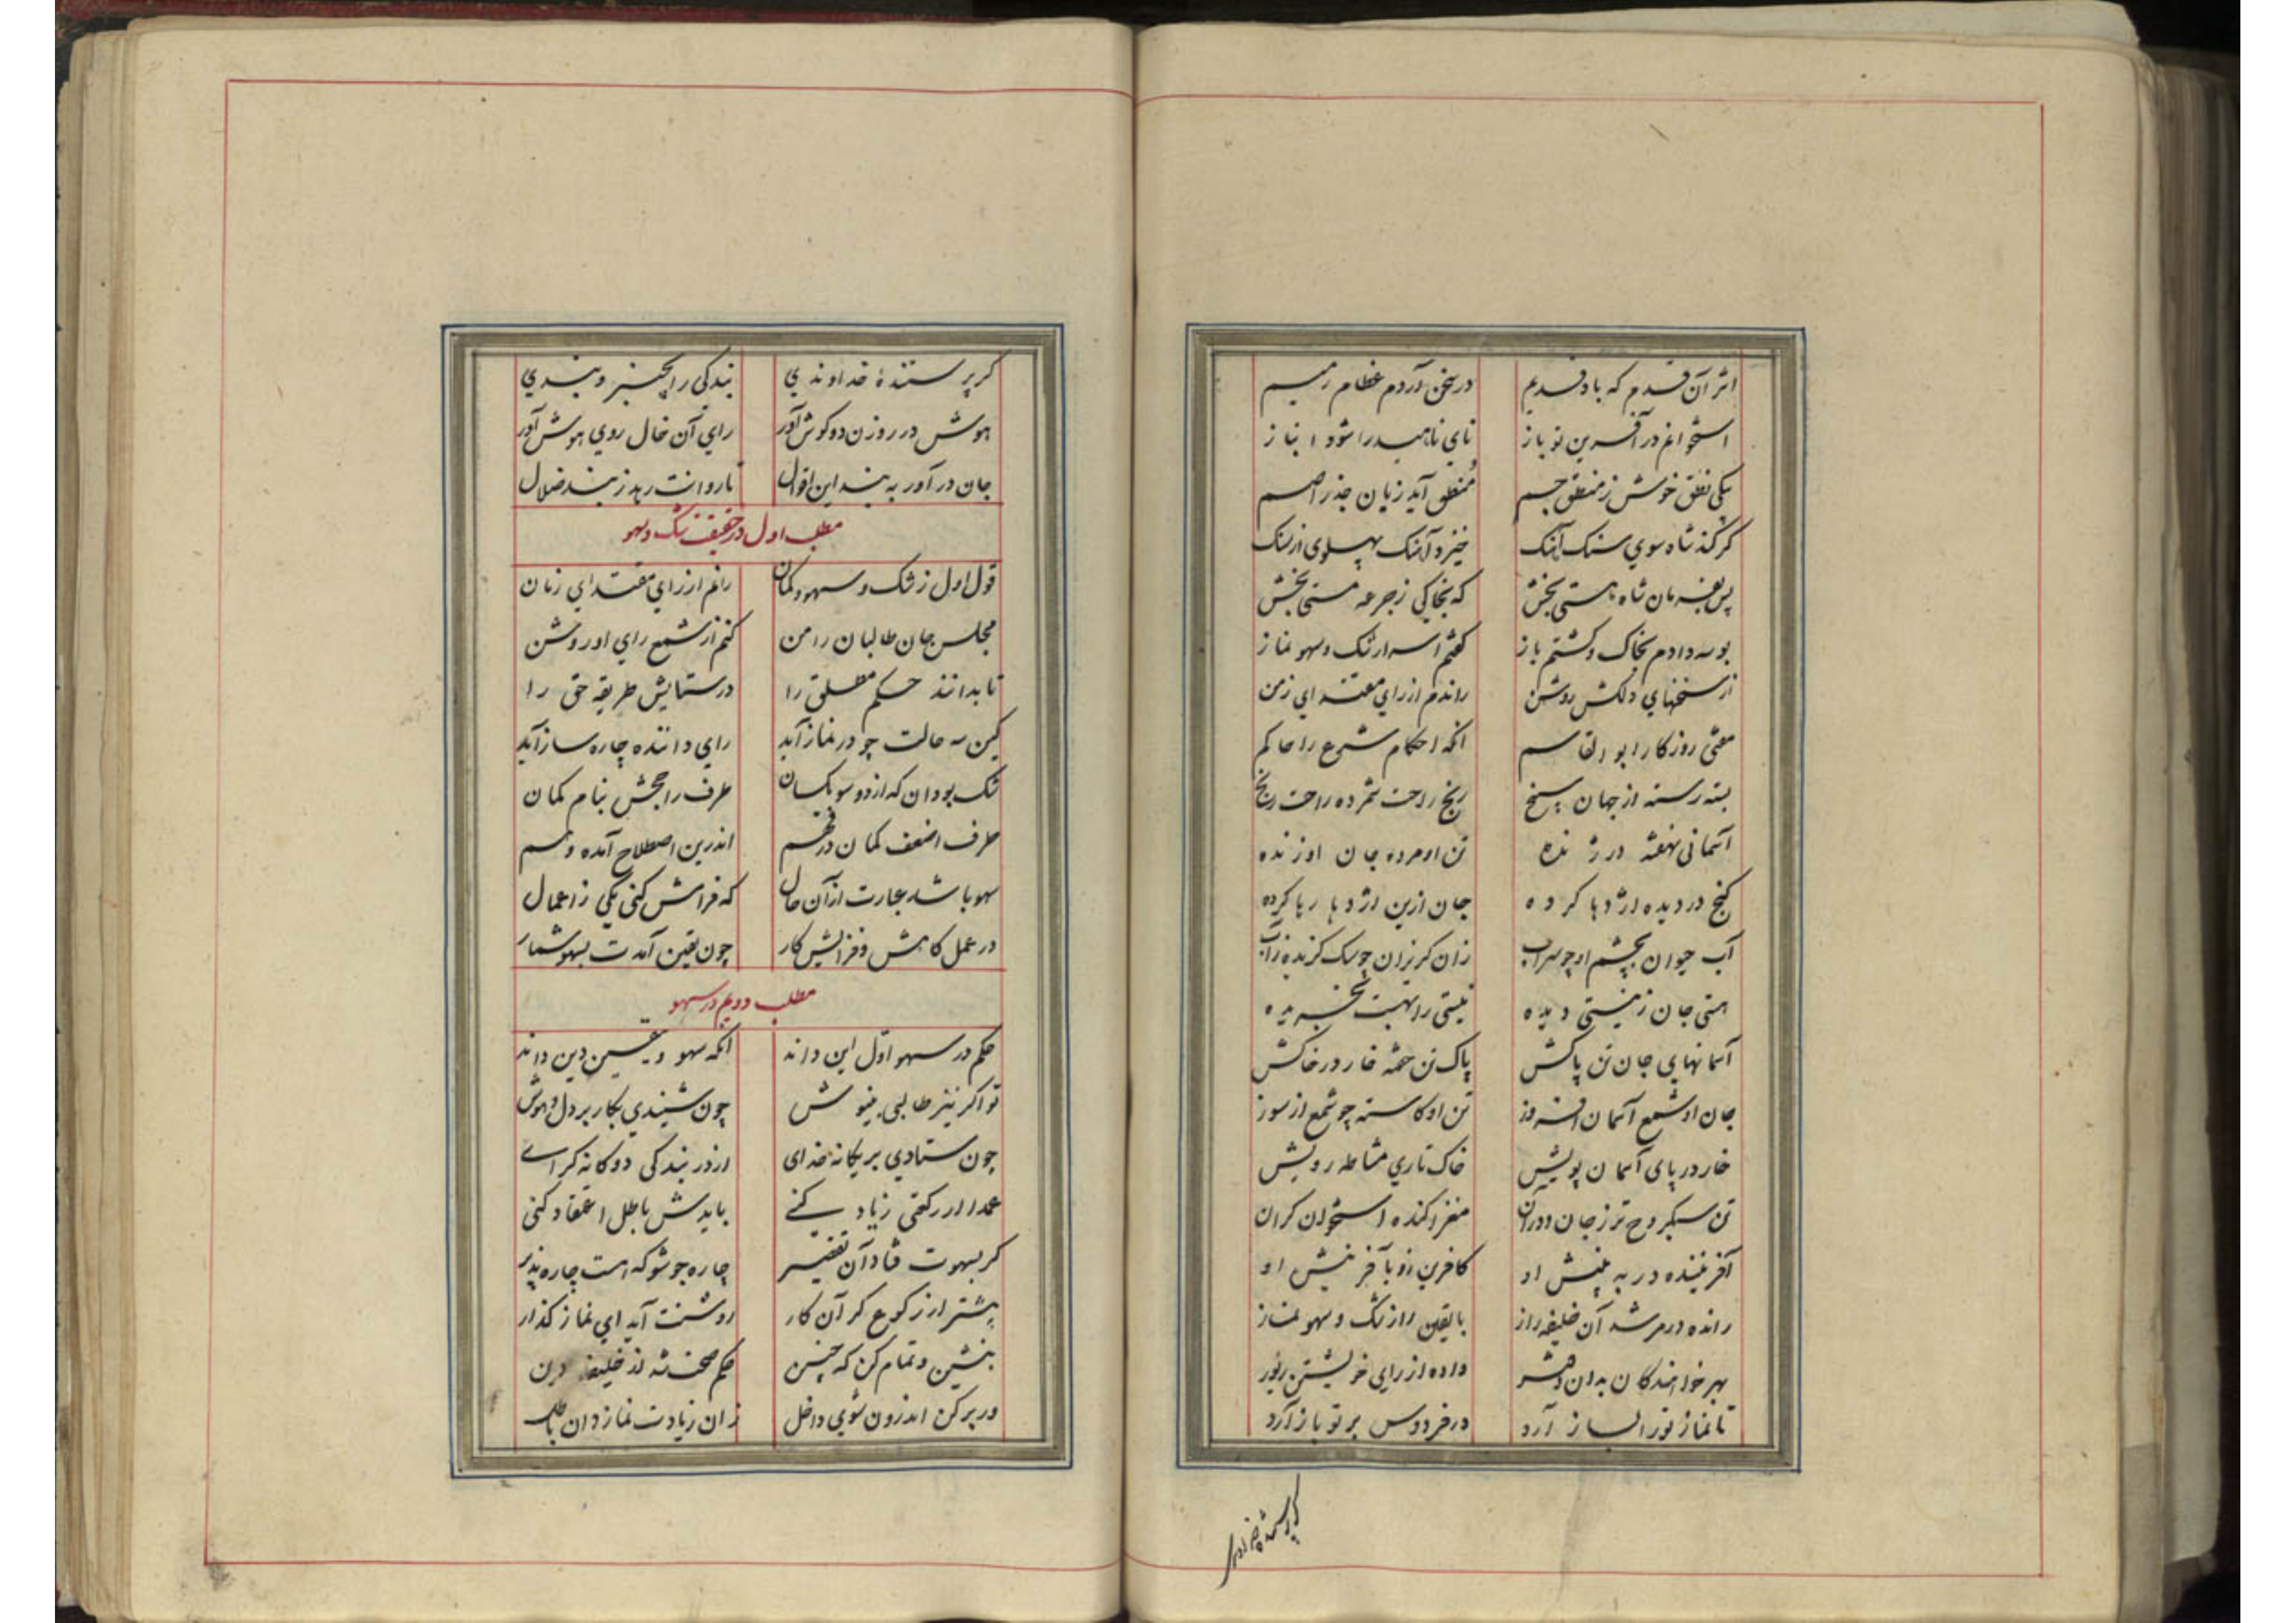 اثر آن قدم که باد قدیم در سخن آردم عظام رمیم
استخوانم در آفرین تو باز نای ناهید را شود انباز
یکی نطق خوش ز منطق جسم منطق آید زبان جذر اصم
کر کند شاه سوی سنک آهنک خیزد آهنک پهلوی از سنک
پس بفرمان شاه هستی بخش که بخاکی ز جرعه مستی بخش
بوسه دادم بخاک و کشتم باز کفتم اسرار شک و سهو نماز
از سخنهای دلکش روشن راندم از رای مقتدای زمن
مفتی روزکار ابو القاسم انکه احکام شرع را حاکم
بسته رسته از جهان سپنج رنج راحت شمرده راحت رنج
آسمانی نهفته در ژنده تن او مرده جان او زنده
کنج در دیده اژدها کرده جان ازین اژدها رها کرده
آب حیوان بچشم او چو سراب زان کریزان چو سک کزیده ز آب
هستی جان ز نیستی دیده نیستی را بهست بخریده
آسمانهای جان تن پاکش پاک تن خفته خار در خاکش
جان او شمع آسمان افروز تن او کاسته چو شمع از سوز
خار در پای آسمان پویش خاک تاری مشاطه رویش
تن سبکروح تر ز جان و در آن مغز آکنده استخوان کران
آفریننده در به بینش او کافرین زو بآفرینش او
رانده در مرشد آن خلیفه راز با یقین راز شک و سهو نماز
بهر خوانندکان بدان دفتر داده از رای خویشتن زیور
تا نماز تو را بساز آرد در فردوس بر تو باز آرد
کر پرستنده خداوندی
کر پرستنده خداوندی بندکی را بخیز و بندی
هوش در روزن دو کوش آور رای آن خال روی هوش آور
جان در آور به بند این اقوال تا روانت رهد ز بند ضلال
مطلب اول در حقیقت شک و سهو
قول اول ز شک و سهو و کمان رانم از رای مقتدای زمان
مجلس جان طالبان را من کنم از شمع رای او روشن
تا بدانند حکم مطلق را در ستایش طریقه حق را
کین سه حالت چو در نماز آید رای داننده چاره ساز آید
شک بود آن که از دو سو یکسان طرف راجحش بنام کمان
طرف اضعف کمان در فهم اندرین اصطلاح آمده وهم
سهو باشد عبارت از آن حال که فرامش کنی یکی ز اعمال
در عمل کاهش و فزایش کار چون یقین آمدت بسهو شمار
مطلب دویم در سهو
حکم در سهو اول این داند انکه سهو و یقین دین داند
تو اکر نیز طالبی بنیوش چون شنیدی بکار بر دل و هوش
چون ستادی بر یکانه خدای از در بندکی دوکانه کرای
عمدا ار رکعتی زیاد کنی بایدش باطل اعتقاد کنی
کر بسهوت فتاد آن تقصیر چاره جو شو که هست چاره پذیر
پیشتر از رکوع کر آن کار روشنت آید ای نماز کذار
بنشین و تمام کن که چنین حکم صحت شد از خلیفه دین
ور برکن اندرون شوی داخل زان زیادت نماز دان باطل